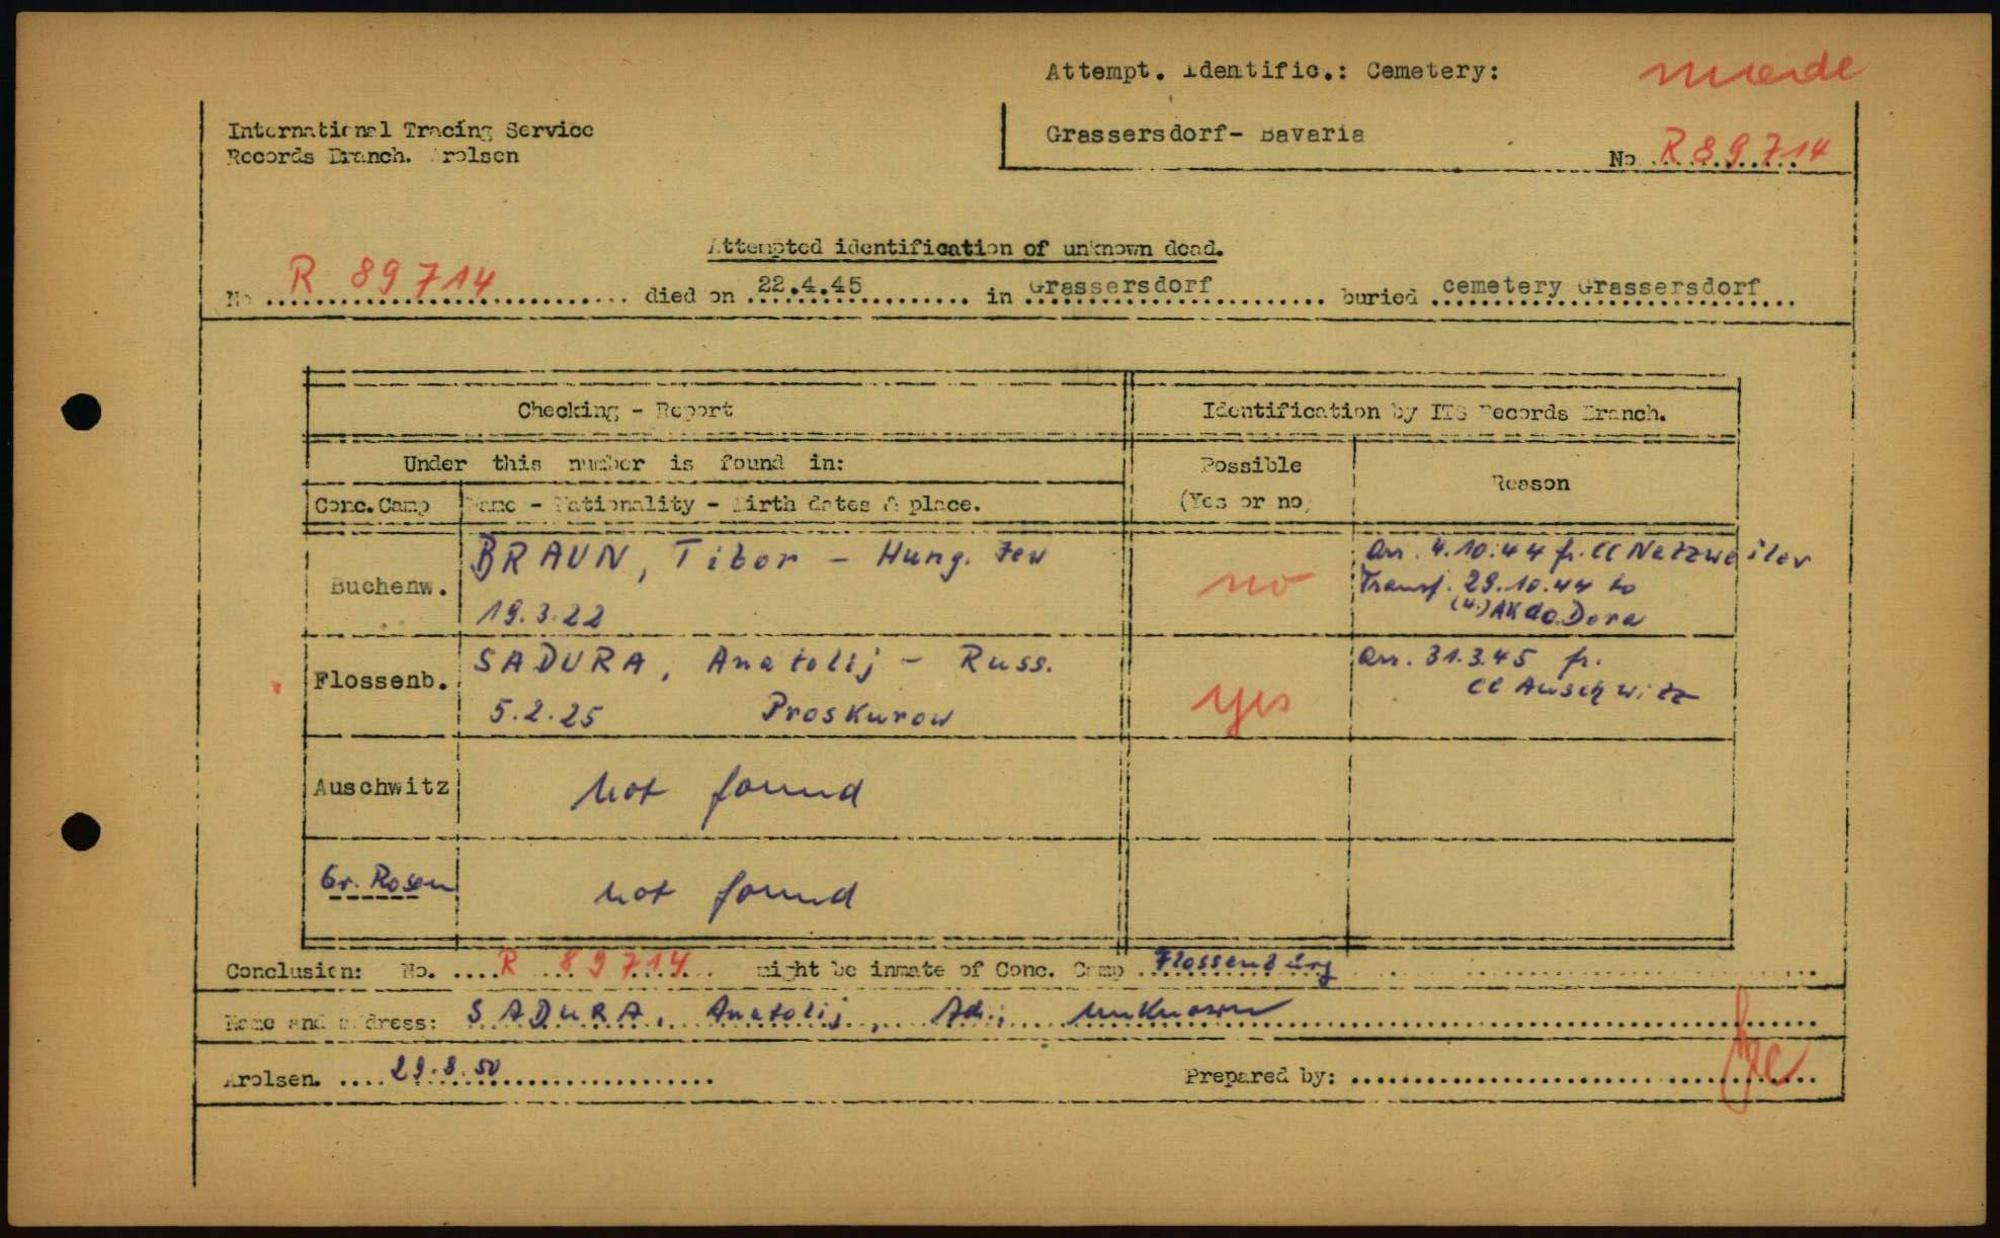 Attempt. Identific.: Cemetery:
made
International Tracing Service
Grassersdorf- Bavaria
Records Branch. Arolsen
No R 89714
Attempted identification of unknown dead.
No R 89714 died on 22.4.45 in Grassersdorf buried cemetery Grassersdorf
Checking - Report
Identification by ITS Records Branch.
Under this number is found in:
Possible
(Yes or no)
Reason
Conc.Camp Name - Nationality - Birth dates & place.
Buchenw. BRAUN, Tibor - Hung. Jew
19.3.22
no
arr. 4.10.44 fr. CC Natzweiler
Transf. 29.10.44 to
AKdo Dora
Flossenb. SADURA, Anatolij - Russ.
5.2.25 Proskurow
yes
arr. 31.3.45 fr.
CC Auschwitz
Auschwitz not found
Gr. Rosen not found
Conclusion: No. R 89714 might be inmate of Conc. Camp Flossenbürg
Name and address: SADURA, Anatolij, Ad.: unknown
Arolsen. 29.8.50 Prepared by: